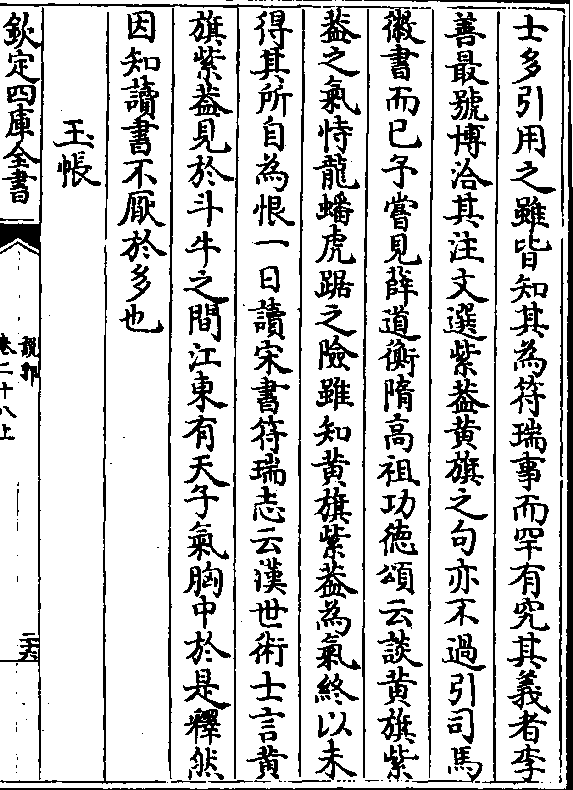 士多引用之雖皆知其為符瑞事而罕有究其義者李
善最號博洽其注文選紫葢黄旗之句亦不過引司馬
徽書而已予嘗見薛道衡隋高祖功徳頌云談黄旗紫
葢之氣恃龍蟠虎踞之險雖知黄旗紫葢為氣終以未
得其所自為恨一日讀宋書符瑞志云漢世術士言黄
旗紫葢見於斗牛之間江東有天子氣胸中於是釋然
因知讀書不厭於多也
玉帳
欽定四庫全書
說郛
卷二十八上
二六